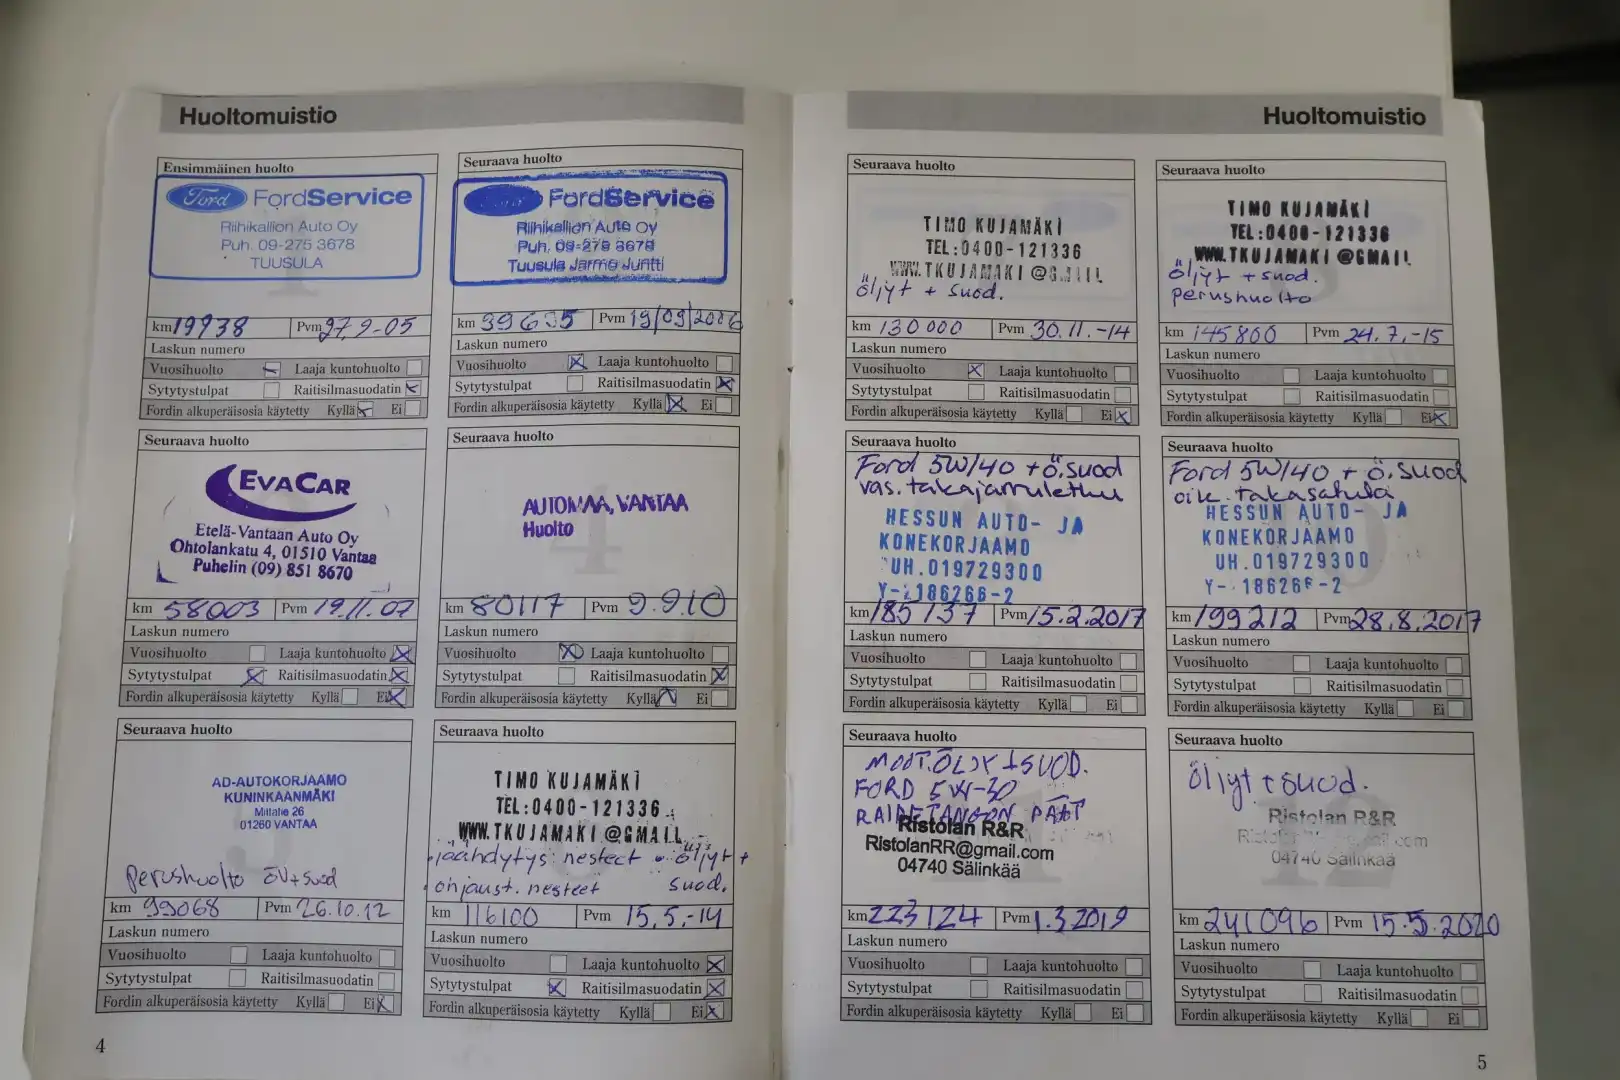 Huoltomuistio
Ensimmäinen huolto
Ford FordService
Riihikallion Auto Oy
Puh. 09-275 3678
TUUSULA
km 19938 Pvm 27.9-05
Laskun numero
Vuosihuolto Laaja kuntohuolto
Sytytystulpat Raitisilmasuodatin
Fordin alkuperäisosia käytetty Kyllä Ei
Seuraava huolto
FordService
Riihikallion Auto Oy
Puh. 09-275 3678
Tuusula Jarmo Juntti
km 39635 Pvm 19/09/2006
Laskun numero
Vuosihuolto Laaja kuntohuolto
Sytytystulpat Raitisilmasuodatin
Fordin alkuperäisosia käytetty Kyllä Ei
Seuraava huolto
EVACAR
Etelä-Vantaan Auto Oy
Ohtolankatu 4, 01510 Vantaa
Puhelin (09) 851 8670
km 58003 Pvm 19.11.07
Laskun numero
Vuosihuolto Laaja kuntohuolto
Sytytystulpat Raitisilmasuodatin
Fordin alkuperäisosia käytetty Kyllä Ei
Seuraava huolto
AUTOMAA, VANTAA
Huolto
km 80117 Pvm 9.9.10
Laskun numero
Vuosihuolto Laaja kuntohuolto
Sytytystulpat Raitisilmasuodatin
Fordin alkuperäisosia käytetty Kyllä Ei
Seuraava huolto
AD-AUTOKORJAAMO
KUNINKAANMÄKI
Millatie 26
01260 VANTAA
Perushuolto öv+suod
km 99068 Pvm 26.10.12
Laskun numero
Vuosihuolto Laaja kuntohuolto
Sytytystulpat Raitisilmasuodatin
Fordin alkuperäisosia käytetty Kyllä Ei
Seuraava huolto
TIMO KUJAMÄKI
TEL:0400-121336
WWW.TKUJAMAKI@GMAIL
jäähdytys nesteet öljyt +
ohjaust. nesteet suod.
km 116100 Pvm 15.5.-14
Laskun numero
Vuosihuolto Laaja kuntohuolto
Sytytystulpat Raitisilmasuodatin
Fordin alkuperäisosia käytetty Kyllä Ei
4
Huoltomuistio
Seuraava huolto
TIMO KUJAMÄKI
TEL:0400-121336
WWW.TKUJAMAKI@GMAIL
öljyt + suod.
km 130000 Pvm 30.11.-14
Laskun numero
Vuosihuolto Laaja kuntohuolto
Sytytystulpat Raitisilmasuodatin
Fordin alkuperäisosia käytetty Kyllä Ei
Seuraava huolto
TIMO KUJAMÄKI
TEL:0400-121336
WWW.TKUJAMAKI@GMAIL
öljyt + suod.
perushuolto
km 145800 Pvm 24.7.-15
Laskun numero
Vuosihuolto Laaja kuntohuolto
Sytytystulpat Raitisilmasuodatin
Fordin alkuperäisosia käytetty Kyllä Ei
Seuraava huolto
Ford 5W/40 + ö.suod
vas. takajarruletku
HESSUN AUTO- JA
KONEKORJAAMO
UH.019729300
Y- 186266-2
km 185137 Pvm 15.2.2017
Laskun numero
Vuosihuolto Laaja kuntohuolto
Sytytystulpat Raitisilmasuodatin
Fordin alkuperäisosia käytetty Kyllä Ei
Seuraava huolto
Ford 5W/40 + ö.suod
oik. takasatula
HESSUN AUTO- JA
KONEKORJAAMO
UH.019729300
Y- 186266-2
km 199212 Pvm 28.8.2017
Laskun numero
Vuosihuolto Laaja kuntohuolto
Sytytystulpat Raitisilmasuodatin
Fordin alkuperäisosia käytetty Kyllä Ei
Seuraava huolto
MOOT.ÖLJY + SUOD.
FORD 5W-30
RAIDETANGON PÄÄT
Ristolan R&R
RistolanRR@gmail.com
04740 Sälinkää
km 223124 Pvm 1.3.2019
Laskun numero
Vuosihuolto Laaja kuntohuolto
Sytytystulpat Raitisilmasuodatin
Fordin alkuperäisosia käytetty Kyllä Ei
Seuraava huolto
öljyt + suod.
Ristolan R&R
04740 Sälinkää
km 241096 Pvm 15.5.2020
Laskun numero
Vuosihuolto Laaja kuntohuolto
Sytytystulpat Raitisilmasuodatin
Fordin alkuperäisosia käytetty Kyllä Ei
5